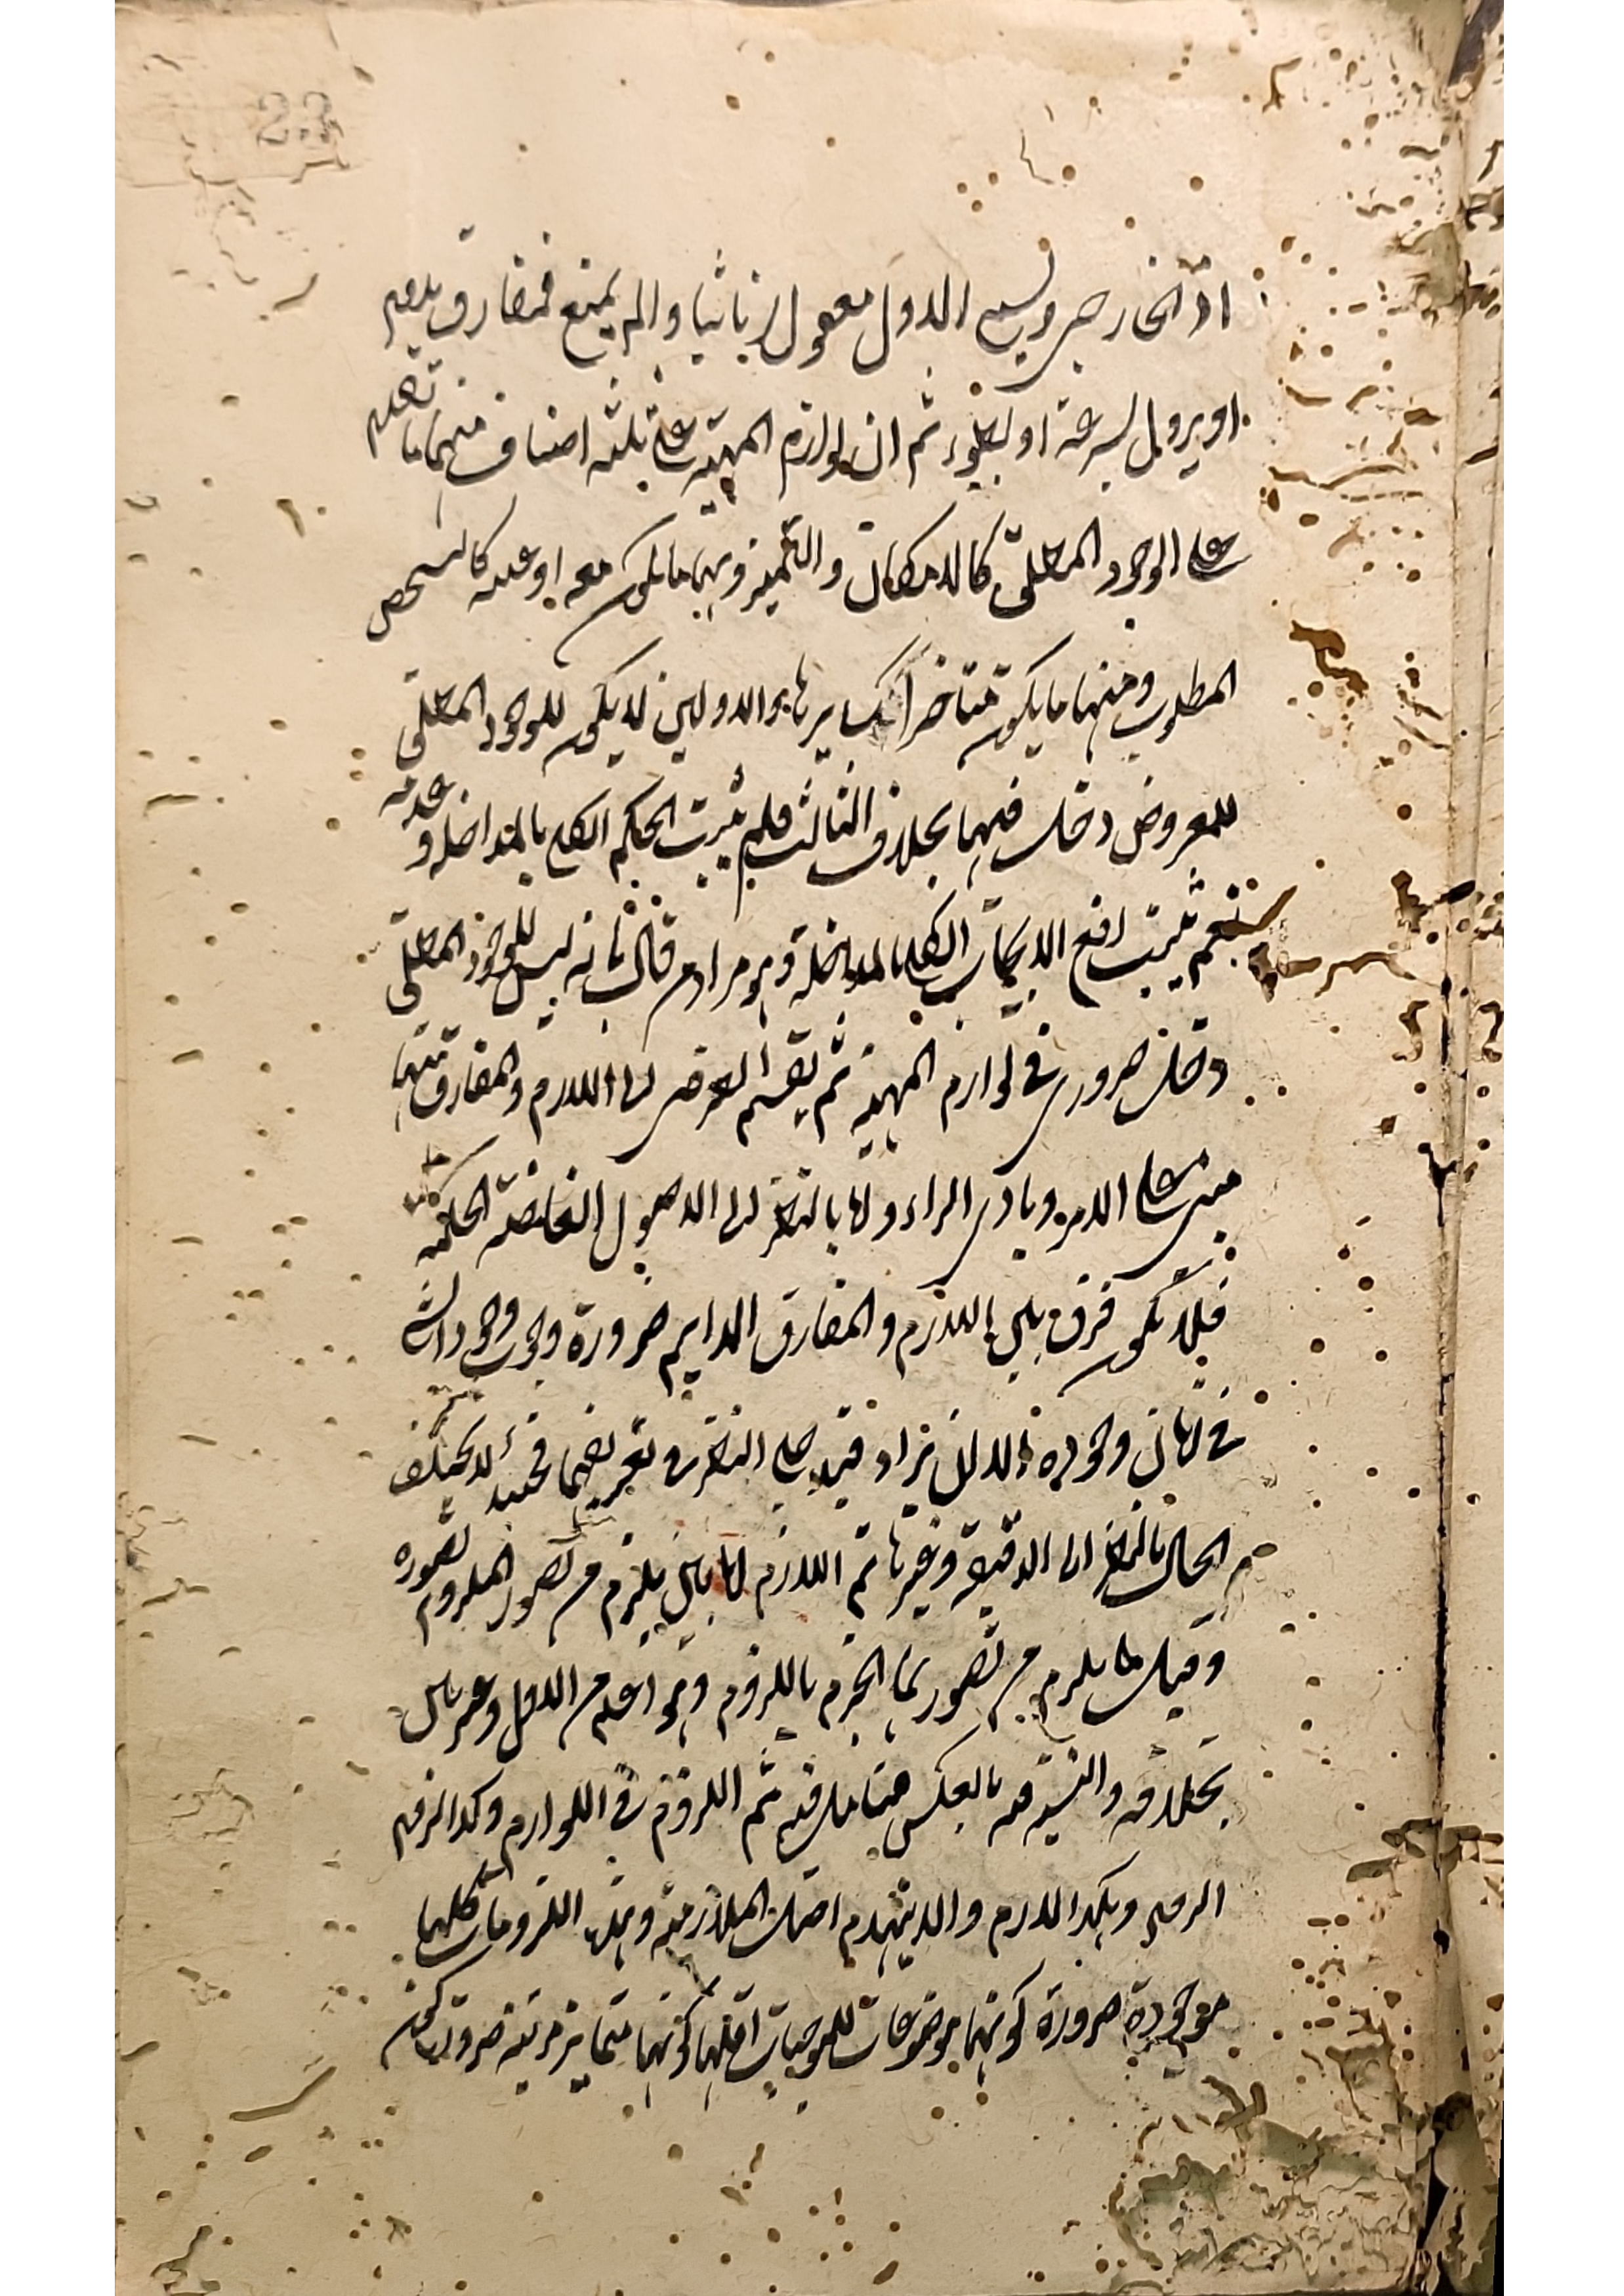 او الخارجي ويسمى الاول معقولا ثانيا والا لم يمتنع فمفارق يدوم
او يزول بسرعة او ببطوء ثم ان لوازم المهية على ثلثة اصناف منها ما تقدم
على الوجود المطلق كالامكان والتميز ومنها ما يكون معه او عينه كالتشخص
المطلوب ومنها ما يكون متاخرا كسايرها والاولين لا يكون للوجود المطلق
للمعروض دخل فيهما بخلاف الثالث فلم يثبت الحكم الكلي بالمداخلة وعدمه
نعم ثبت رفع الايجاب الكلي بالمداخلة وهو مراد من قال بانه ليس للوجود المطلق
دخل ضروري في لوازم المهية ثم تقسيم العرضي الى اللازم والمفارق منهما
مبني على الامر وبادي الراء واما بالنظر الى الاصول الغامضة الحكمية
فلا يكون فرق بين اللازم والمفارق الدايم ضرورة وجوب وجود الشئ
في زمان وجوده الا ان يزاد قيد جلي النظر في تعريفهما فحينئذ لا يختلف
الحال بالنظر الى الدقيقة وغيرها ثم اللازم اما بين يلزم من تصور الملزوم تصوره
وقيل ما يلزم من تصورهما الجزم باللزوم وهو اعم من الاول وغير بين
بخلافه والنسبة فيه بالعكس فتامل فيه ثم اللزوم في اللوازم وكذا لزوم
اللزوم وهكذا لازم والا ينهدم اصل الملازمة وهذه اللزومات كلها
موجودة ضرورة كونها موضوعات للموجبات اقلها كونها متمايزة مرتبة ضرورة كون